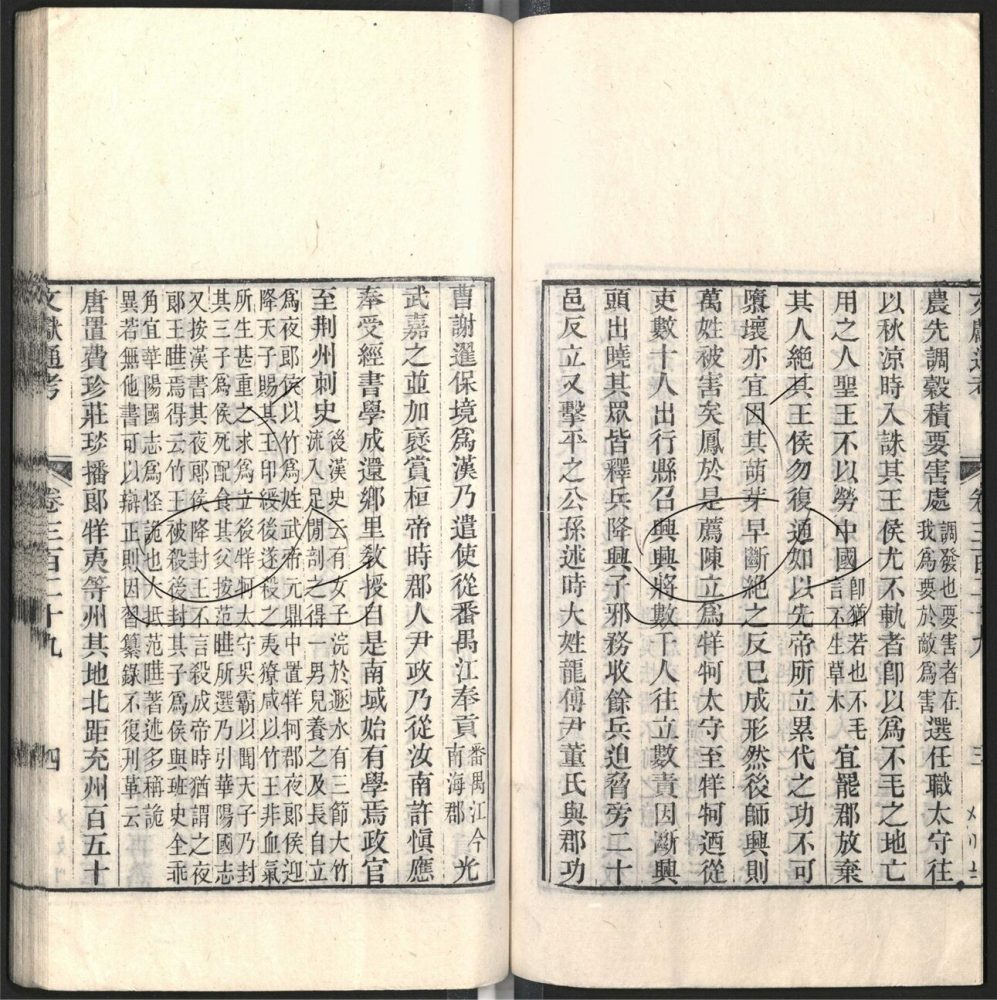 農先調穀積要害處調發也要害者在我爲要於敵爲害選任職太守往
以秋涼時入誅其王侯尤不軌者卽以爲不毛之地亡
用之人聖王不以勞中國卽猶若也不毛言不生草木宜罷郡放棄
其人絕其王侯勿復通如以先帝所立累代之功不可
隳壞亦宜因其萌芽早斷絕之反巳成形然後師興則
萬姓被害矣鳳於是薦陳立爲牂牁太守至牂牁迺從
吏數十人出行縣召興興將數千人往立數責因斷興
頭出曉其眾皆釋兵降興子邪務收餘兵迫脅旁二十
邑反立又擊平之公孫述時大姓龍傅尹董氏與郡功
曹謝暹保境爲漢乃遣使從番禺江奉貢番禺江今南海郡光
武嘉之並加褒賞桓帝時郡人尹政乃從汝南許愼應
奉受經書學成還鄉里敎授自是南域始有學焉政官
至荆州刺史後漢史云有女子浣於遯水有三節大竹
流入足閒剖之得一男兒養之及長自立
爲夜郞侯以竹爲姓武帝元鼎中置牂牁郡夜郞侯迎
降天子賜其王印綬後遂殺之夷獠咸以竹王非血氣
所生甚重之求爲立後牂牁太守吳霸以聞天子乃封
其三子爲侯死配食其父按范曄所選乃引華陽國志
又按漢書其夜郞侯降封王不言殺成帝時猶謂之夜
郞王曄焉得云竹王被殺後封其子爲侯與班史全乖
角宜華陽國志爲怪詭也大抵范曄著述多稱詭
異若無他書可以辯正則因習纂錄不復刋革云
唐置費珍莊琰播郞牂夷等州其地北距充州百五十
文獻通考
卷三百二十九
四